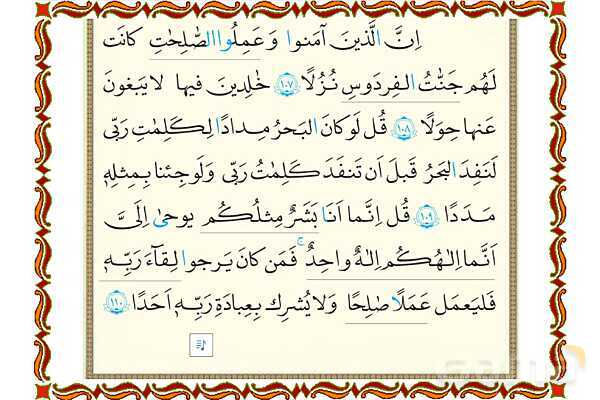 اِنَّ الَّذينَ آمَنوا وَ عَمِلُوا الصّٰلِحٰتِ كانَت
لَهُم جَنّٰتُ الفِردَوسِ نُزُلًا ١٠٧ خٰلِدينَ فيها لا يَبغونَ
عَنها حِوَلًا ١٠٨ قُل لَو كانَ البَحرُ مِدادًا لِكَلِمٰتِ رَبّى
لَنَفِدَ البَحرُ قَبلَ اَن تَنفَدَ كَلِمٰتُ رَبّى وَلَو جِئنا بِمِثلِهٖ
مَدَدًا ١٠٩ قُل اِنَّما اَنَا بَشَرٌ مِثلُكُم يوحىٰ اِلَىَّ
اَنَّما اِلٰهُكُم اِلٰهٌ واحِدٌ ۚ فَمَن كانَ يَرجوا لِقاۤءَ رَبِّهٖ
فَليَعمَل عَمَلًا صٰلِحًا وَلا يُشرِك بِعِبادَةِ رَبِّهٖ اَحَدًا ١١٠